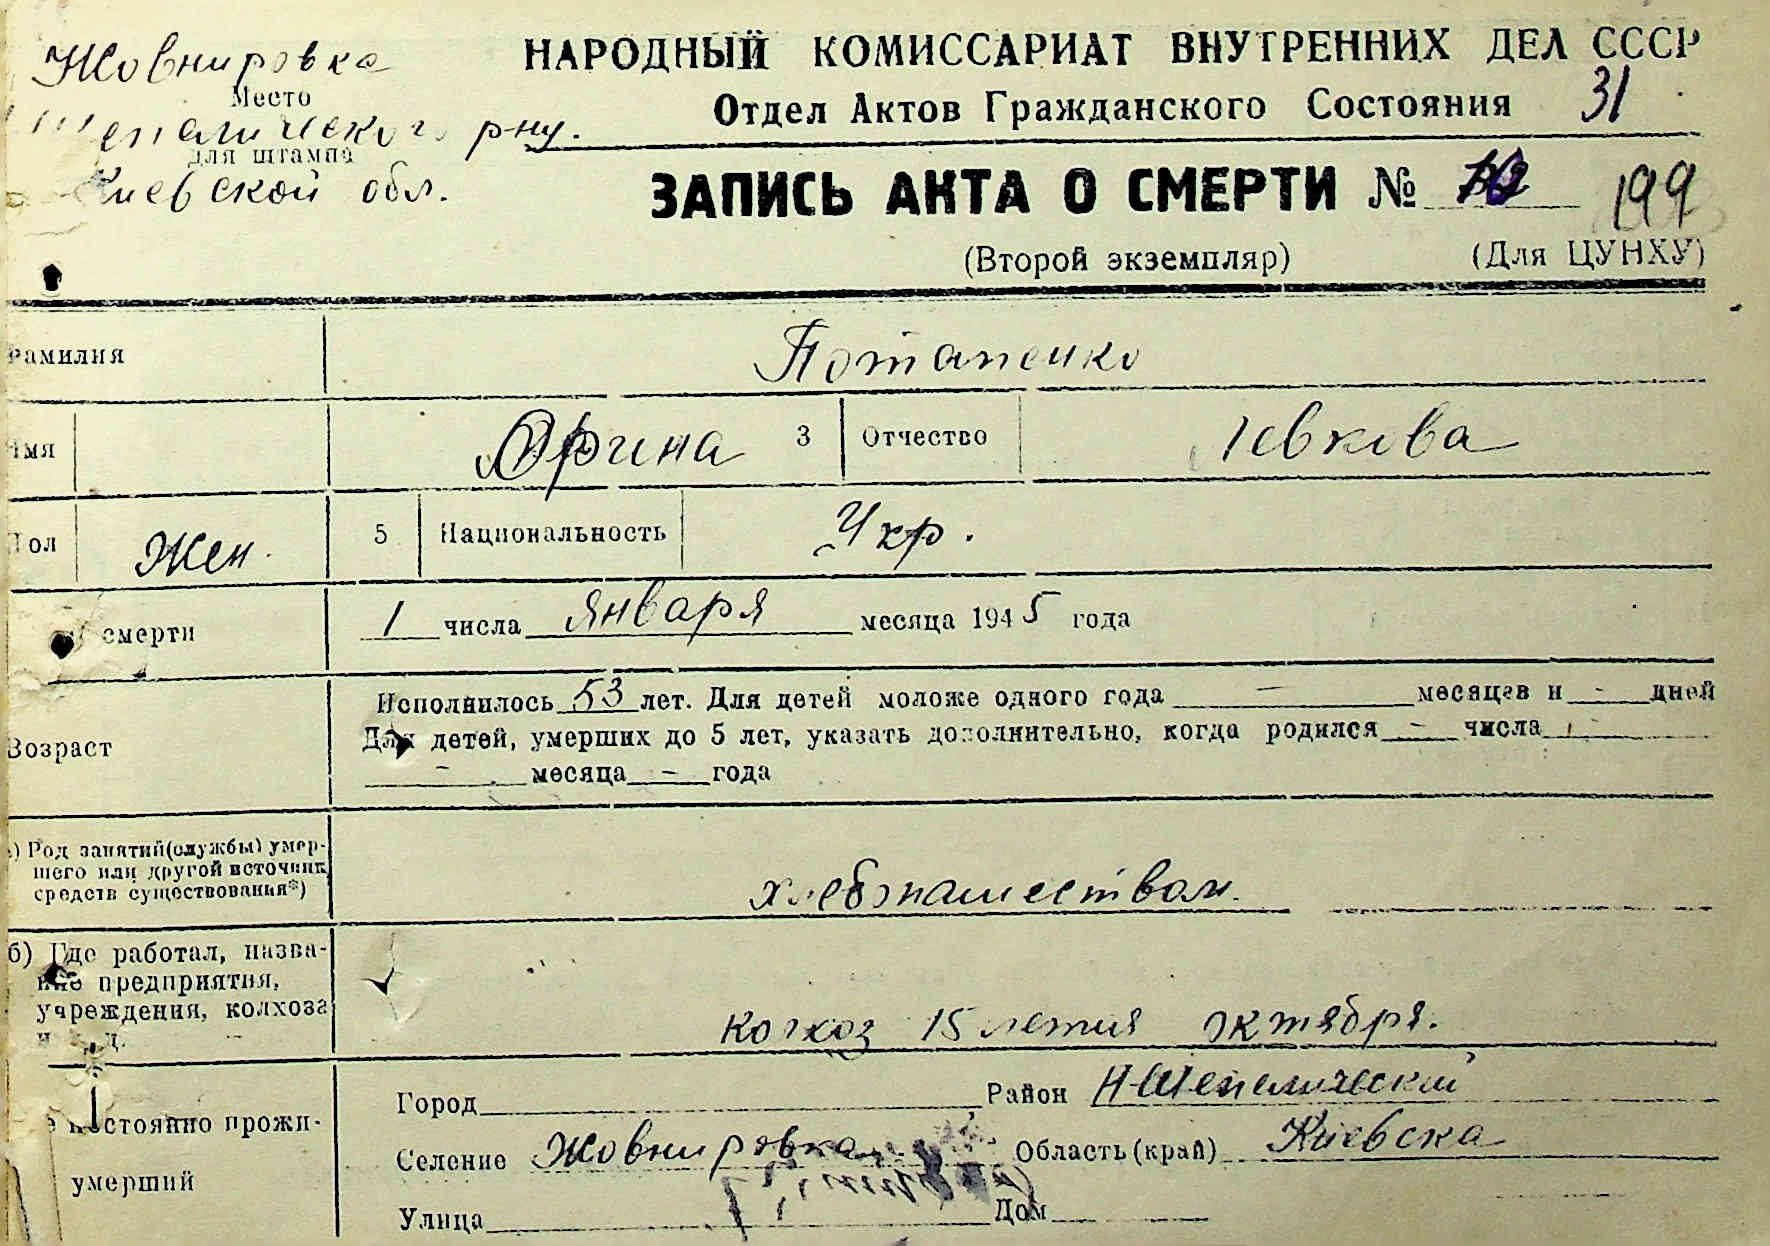 Жовнировка
Место
Шепелического р-ну.
для штампа
Киевской обл.
НАРОДНЫЙ КОМИССАРИАТ ВНУТРЕННИХ ДЕЛ СССР
Отдел Актов Гражданского Состояния 31
ЗАПИСЬ АКТА О СМЕРТИ № 199
(Второй экземпляр) (Для ЦУНХУ)
Фамилия Потапенко
Имя Орина 3 Отчество Левкова
Пол Жен. 5 Национальность Укр.
смерти 1 числа января месяца 1945 года
Исполнилось 53 лет. Для детей моложе одного года - месяцев и - дней
Возраст Для детей, умерших до 5 лет, указать дополнительно, когда родился - числа
- месяца - года
) Род занятий (службы) умер-
шего или другой источник
средств существования*) хлебопашеством.
б) Где работал, назва-
ние предприятия,
учреждения, колхоза
и т. д. колхоз 15 летия октября.
Город Район Н-Шепелический
е постоянно прожи-
Селение Жовнировка Область (край) Киевска
умерший
Улица Дом